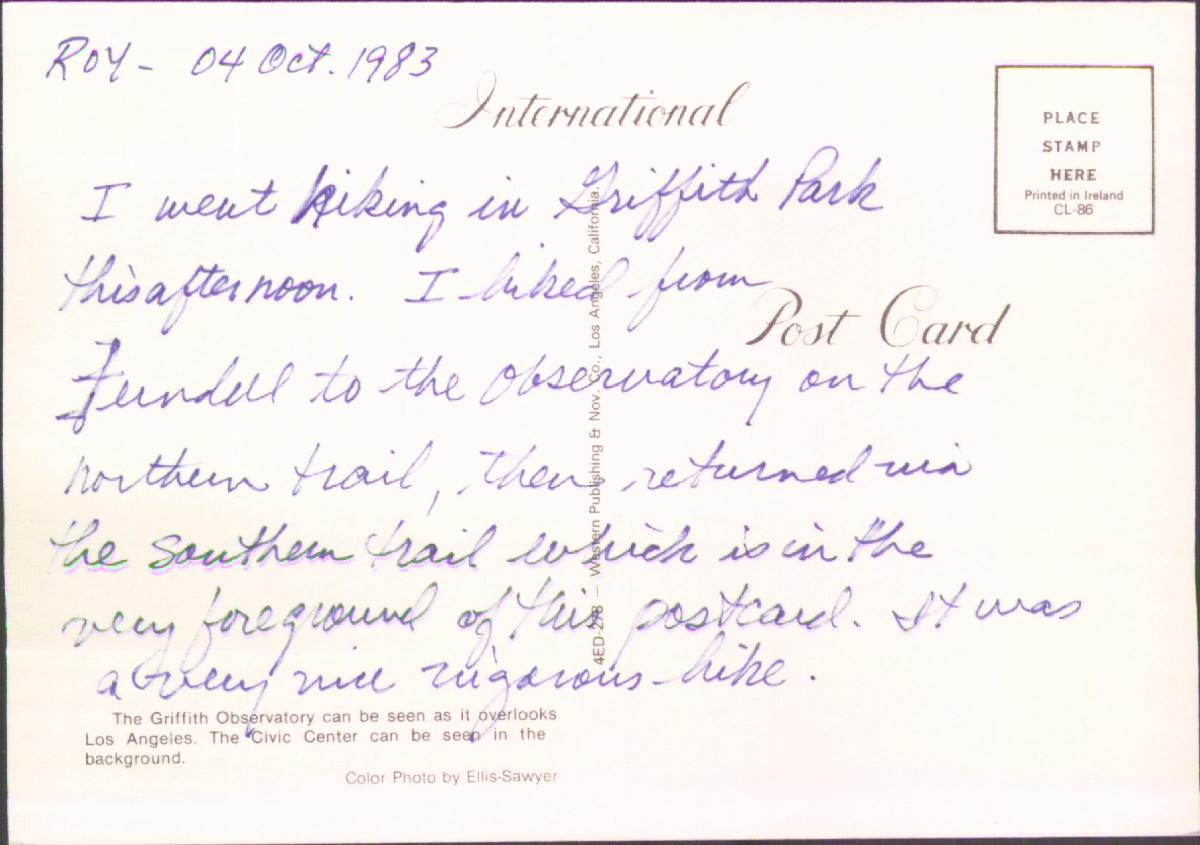 ROY - 04 Oct. 1983
International
PLACE
STAMP
HERE
Printed in Ireland
CL-86
I went hiking in Griffith Park
this afternoon. I hiked from
Post Card
Ferndell to the Observatory on the
northern trail, then returned via
the southern trail which is in the
very foreground of this postcard. It was
a very nice vigorous hike.
4ED-278 – Western Publishing & Nov. Co., Los Angeles, California.
The Griffith Observatory can be seen as it overlooks
Los Angeles. The Civic Center can be seen in the
background.
Color Photo by Ellis-Sawyer